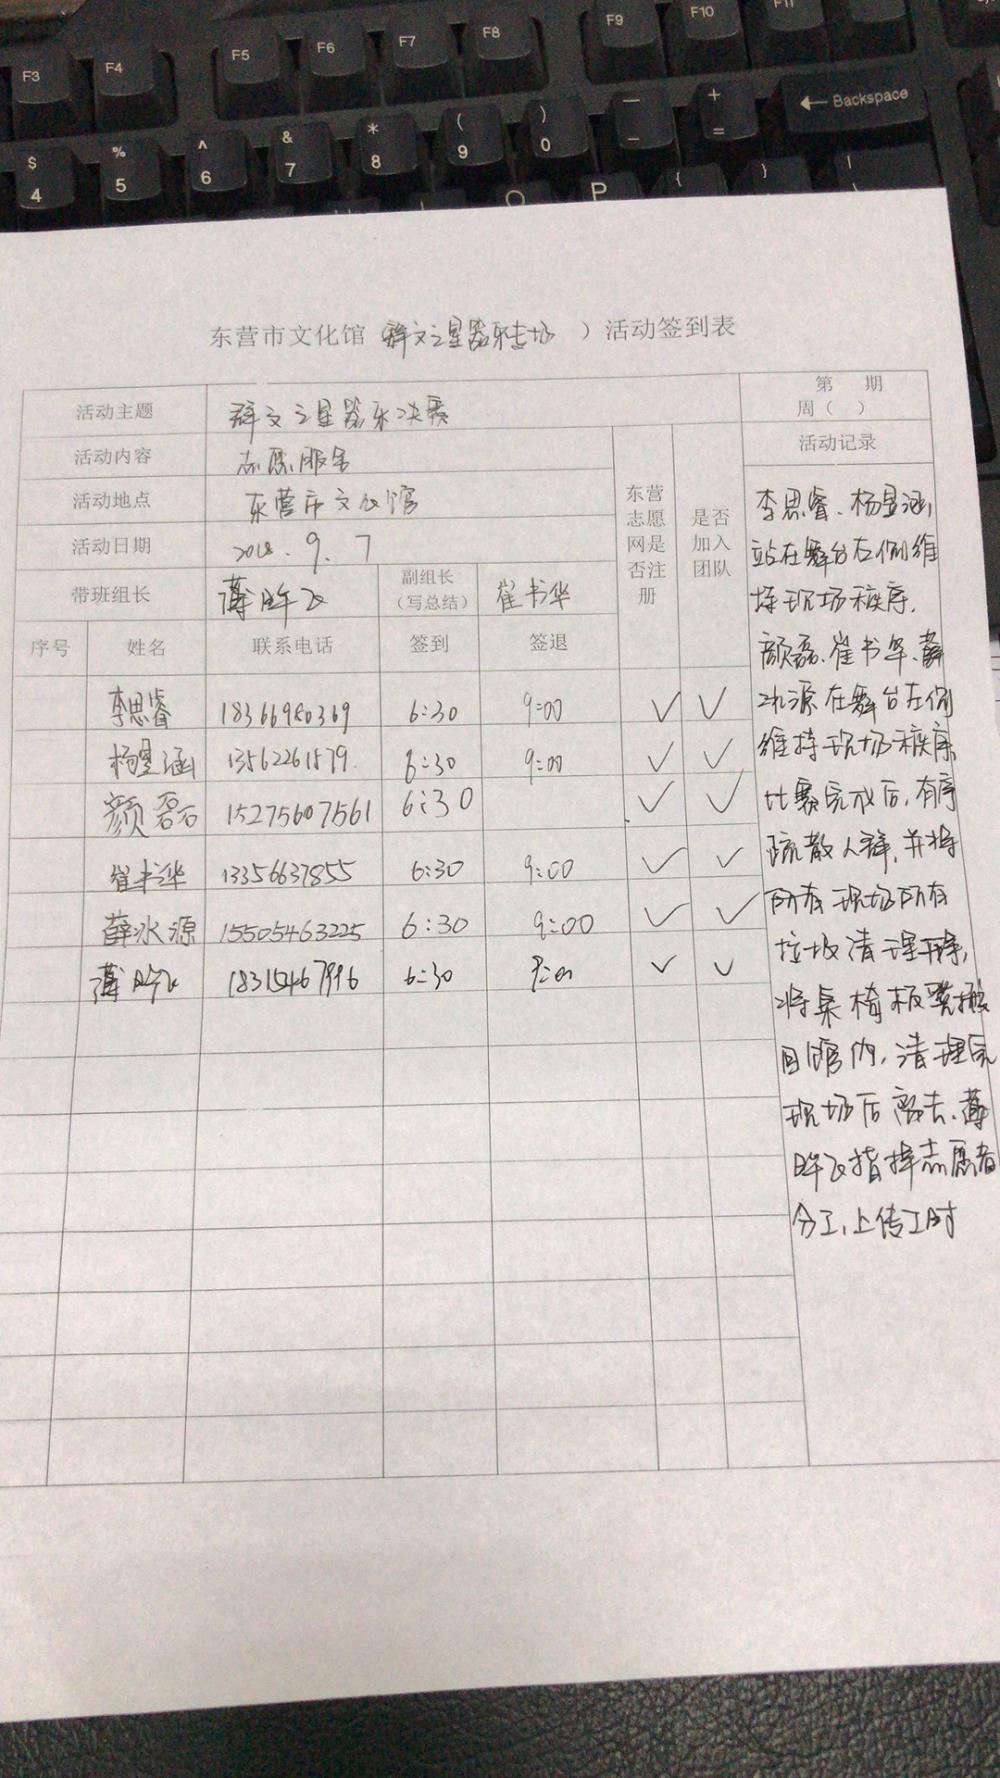 F3 F4 F5 F6 F7 F8 F9 F10 F11
$ 4 % 5 ^ 6 & 7 * 8 ( 9 ) 0 — - + = ← Backspace
O P { } |
东营市文化馆（群文之星器乐专场 ）活动签到表
活动主题 群文之星器乐决赛 第 期 周（ ）
活动内容 志愿服务 东营志愿网是否注册 是否加入团队 活动记录
活动地点 东营市文化馆
活动日期 2018.9.7
带班组长 薄昨飞 副组长（写总结） 崔书华
序号 姓名 联系电话 签到 签退
李思睿 18366980369 6:30 9:00 ✓ ✓
杨昱涵 13562261579 6:30 9:00 ✓ ✓
颜磊 15275607561 6:30 ✓ ✓
崔书华 13356637855 6:30 9:00 ✓ ✓
薛冰源 15505463225 6:30 9:00 ✓ ✓
薄昨飞 18315467996 6:30 9:00 ✓ ✓
李思睿、杨昱涵
站在舞台右侧维
持现场秩序.
颜磊、崔书华、薛
冰源在舞台左侧
维持现场秩序
比赛完成后,有序
疏散人群,并将
所有现场所有
垃圾清理干净,
将桌椅板凳搬
回馆内,清理完
现场后离去.薄
昨飞指挥志愿者
分工,上传工时